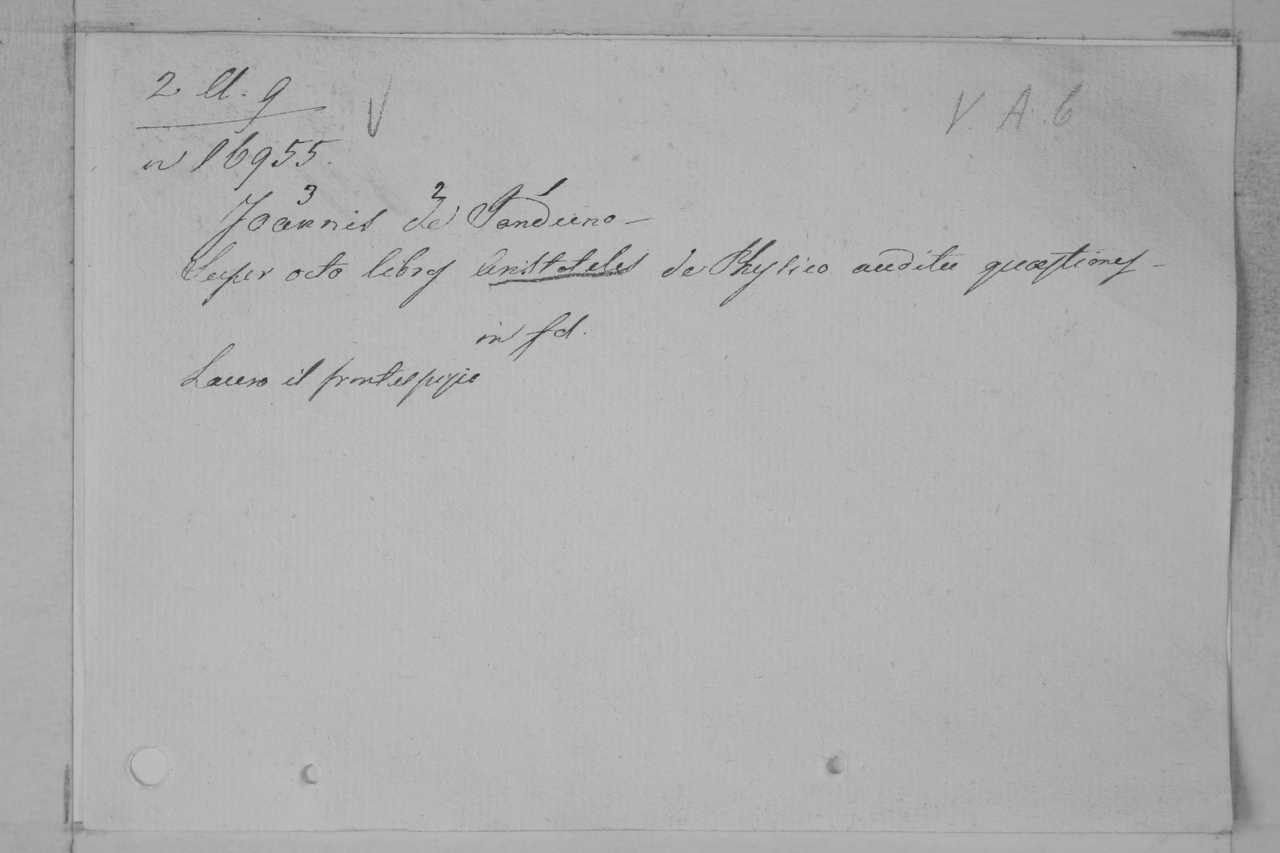 2 A. 9 V V. A. 6
n 16955.
Joannis 3 de 2 Janduno 1 —
Super octo libros Aristoteles de Physico auditu quæstiones —
in fol.
Lacero il frontespizio